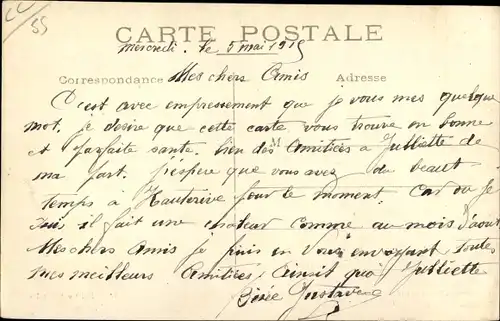 55
CARTE POSTALE
Mercredi. le 5 mai 1915
Correspondance Mes chers Amis Adresse
C'est avec empressement que je vous mes quelque
mot. je desire que cette carte vous trouve en bonne
et parfaite sante. bien des Amitiés à Julliette de
ma part. j'éspére que vous avez du beaut
temps à Hauterive pour le moment. Car ou je
suis il fait une chaleur comme au mois d'aout
Mes chers Amis je finis en vous envoyant toutes
mes meilleurs Amitiées Ainsit qu'à Julliette
Gustave